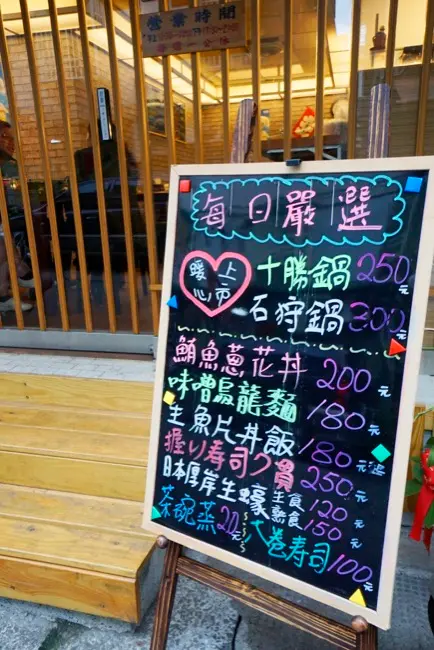 營業時間
每日嚴選
暖心上市
十勝鍋 250元
石狩鍋 300元
鮪魚蔥花丼 200元
味噌烏龍麵 180元
生魚片丼飯 180元起
握り寿司7貫 250元
日本厚岸生蠔 生食 120元
熟食 150元
茶碗蒸 20元
大卷寿司 100元